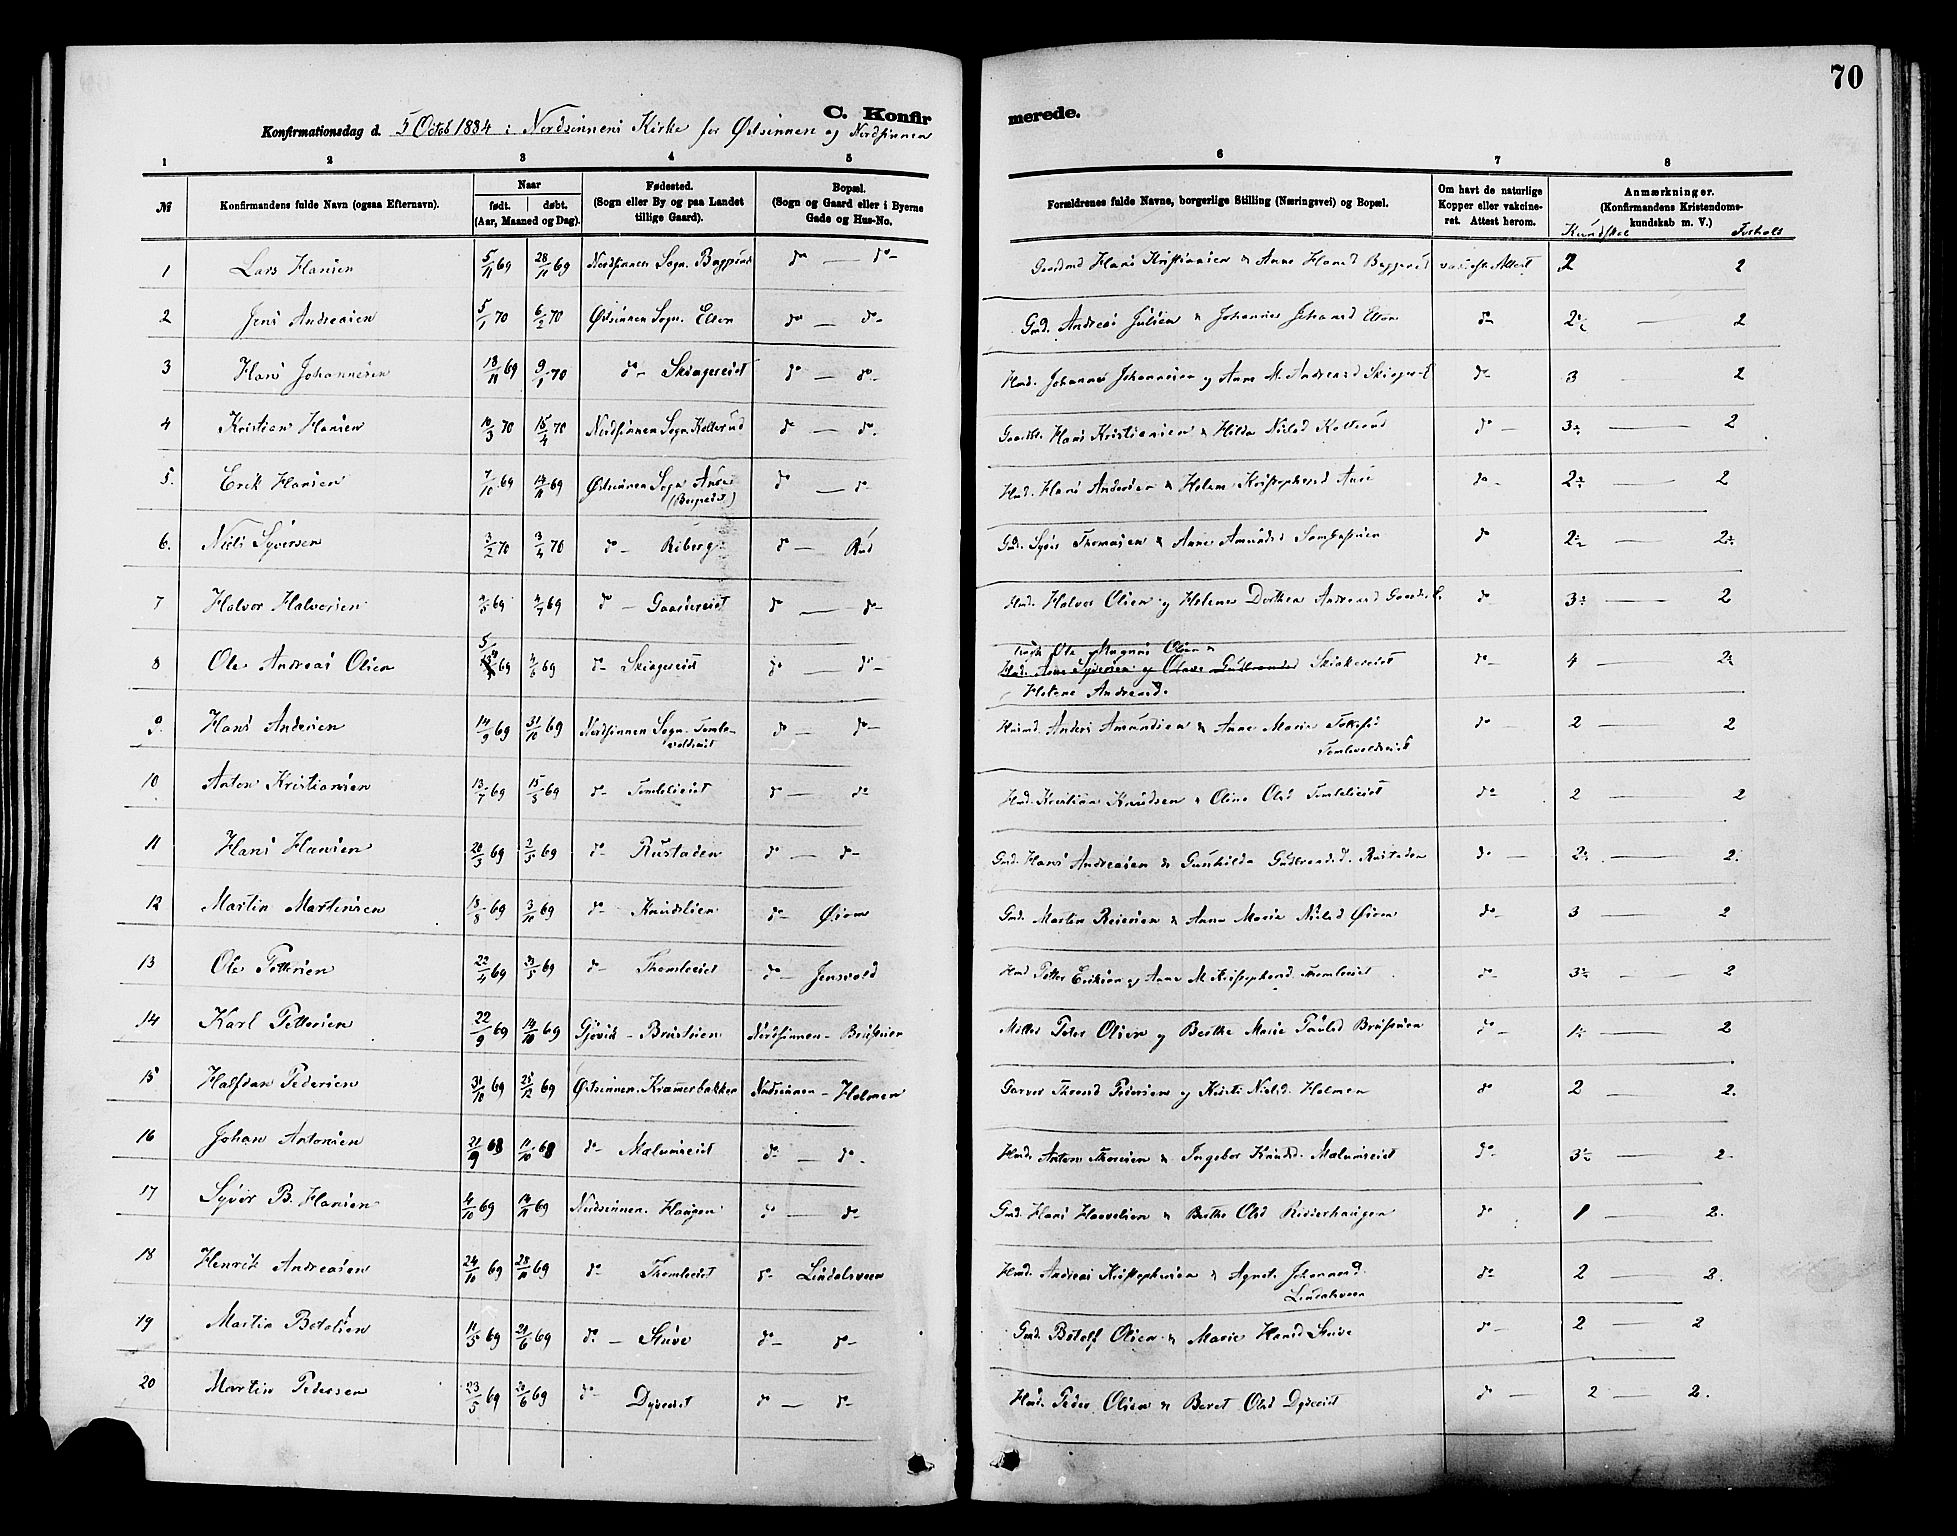 70
C. Konfirmerede.
Konfirmationsdag d. 5 Octob 1884 i Nordsinnens Kirke for Østsinnen og Nordsinnen
1 2 3 4 5 6 7 8
№ Konfirmandens fulde Navn (ogsaa Efternavn). Naar født. døbt. (Aar, Maaned og Dag). Fødested. (Sogn eller By og paa Landet tillige Gaard). Bopæl. (Sogn og Gaard eller i Byerne Gade og Hus-No. Forældrenes fulde Navne, borgerlige Stilling (Næringsvei) og Bopæl. Om havt de naturlige Kopper eller vakcineret. Attest herom. Anmærkninger. (Konfirmandens Kristendomskundskab m. V.)
1 Lars Hansen 5/11 69 28/11 69 Nordsinnen Sogn. do — do Hans Kristiansen & Anne Hansd 2 2
2 Jens Andreasen 5/1 70 6/2 70 Østsinnen Sogn. Elton do — do Gmd. Andreas Julsen & Johanne Elton do 2 1/2 — 2
3 Hans Johannesen 18/11 69 9/1 70 do Skingereiet do — do Hmd. Johannes Johannesen og Anne M. Andreasd do 3 2
4 Kristian Hansen 10/3 70 15/4 70 Nordsinnen Sogn Kolterud do — do Hans Kristiansen & Hilda Nielsd Kolterud do 3 1/2 — 2
5. Erik Hansen 7/10 69 14/11 69 Østsinnen Sogn do — do Hmd. Hans Andersen & Helene Kristophersd do 2 1/2 — 2
6. Niels Syversen 3/2 70 3/4 70 do Riberg do — Rud Gmd. Syver Thomasen & Anne Amundsd do 2 1/2 — 2 1/2
7 Halvor Halvorsen 69 4/7 69 do Gaardereiet do — do Hmd. Halvor Olsen og Helene Dorthea Andreasd do 3 1/2 — 2
8 Ole Andreas Olsen 69 69 do Skingereiet do — do Ole Magnus Olsen & Helene Andreasd. do 4 — 2 1/2
9. Hans Andersen 14/9 69 31/10 69 Nordsinnen Sogn. Tomlevoldseiet do — do Husmd. Anders Amundsen & Anne Marie Tomlevoldseiet do 2 — 2
10 Anton Kristiansen 13/7 69 15/5 69 do Tomleleiet do — do Hmd. Kristian Knudsen & Oline Olsd Tomleleiet do 2 — 2
11 Hans Hansen 20/3 69 2/5 69 do Rustaden do — do Gmd. Hans Andreasen & Gunhilda Gulbrandsd. Rustaden do 2 1/2 — 2.
12 Martin Martinsen 18/8 69 3/10 69 do Knudslien do Øiom Gmd. Martin Reiersen & Anne Marie Nielsd Øiom do 3 — 2
13 Ole Pettersen 22/4 69 23/5 69 do Thomleeiet do — Jensvold Hmd Petter Eriksen og Anne M Kristophersd. Thomleeiet do 3 1/2 — 2
14 Karl Pettersen 22/9 69 14/10 69 Gjøvik - Brustuen Nordsinnen - Brustuen Møller Peter Olsen og Berthe Marie Paulsd Brustuen do 1 1/2 — 2
15 Halfdan Pedersen 31/10 69 25/12 69 Østsinnen. Kramerbakken Nordsinnen - Holmen Garver Thorvd Pedersen og Nielsd. Holmen do 2 — 2.
16 Johan Antonsen 21/9 68 11/10 68 do Mælumseiet do — do. Hmd. Anton Thoresen & Ingebor Knudsd. Mælumseiet do 3 1/2 — 2
17 Syver B. Hansen 4/10 69 14/11 69 Nordsinnen. Haugen do — do Gmd. Hans & Berthe Olsd do 1 — 2.
18 Henrik Andreasen 24/10 69 28/11 69 do Thomleeiet do Lindalsveen Hmd. Andreas Kristophersen & Agnete Johannesd. Lindalsveen do 2 — 2.
19 Martin Botolfsen 11/5 69 69 do — Stuve do do Gmd. Botolf Olsen & Marie Hansd Stuve do 2 — 2
20 Martin Pedersen 23/5 69 20/6 69 do Dyveeiet do — do Hmd. Peder Olsen & Beret Olsd Dyveeiet do 2 — 2.